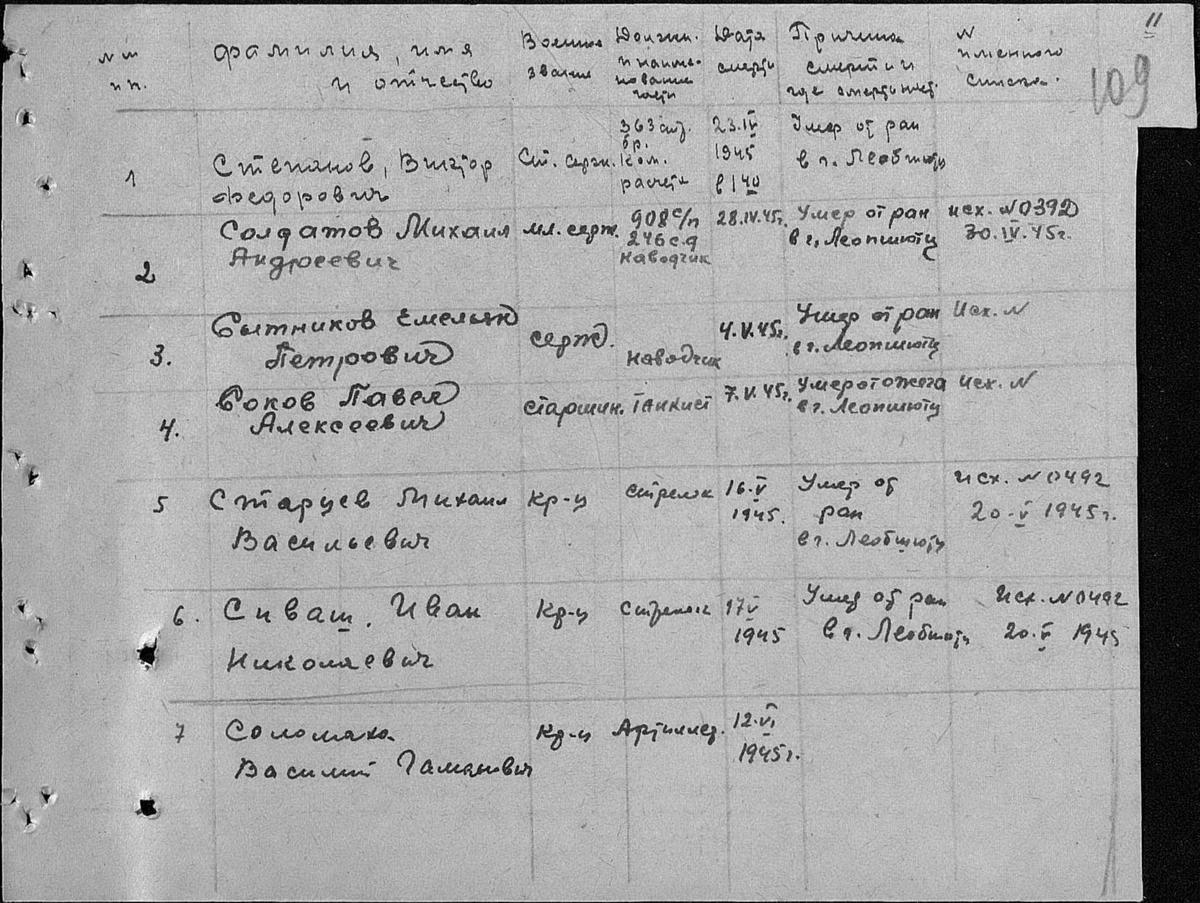 11
109
№№ п п.
фамилия, имя и отчество
Военное звание
Должн. и наименование части
Дата смерти
Причина смерти и где
N именного списка
1
Степанов, Виктор
Федорович
Ст. серж.
363
бр.
Ком.
расчета
23.IV
1945
в 1 40
Умер от ран
в г. Леобшютц
2
Солдатов Михаил
Андреевич
мл. серж.
908 с/п
246 с.д
наводчик
28.IV.45г.
Умер от ран
в г. Леопшютц
исх. №0392
30.IV.45г.
3.
Сытников Емельян
Петрович
серж.
наводчик
4.V.45г.
Умер от ран
в г. Леопшютц
Исх. N
4.
Соков Павел
Алексеевич
старшин.
танкист
7.V.45г.
Умер от ожега
в г. Леопшютц
исх. N
5
Старцев Михаил
Васильевич
кр-ц
стрелок
16.V
1945.
Умер от
ран
в г. Леобшютц
Исх. №0492
20.V 1945г.
6.
Сиваш, Иван
Николаевич
Кр-ц
стрелок
17 V
1945
Умер от ран
в г. Леобшютц
Исх. №0492
20.V 1945
7
Соломаха
Василий
кр-ц
Артиллер.
12.VI
1945г.